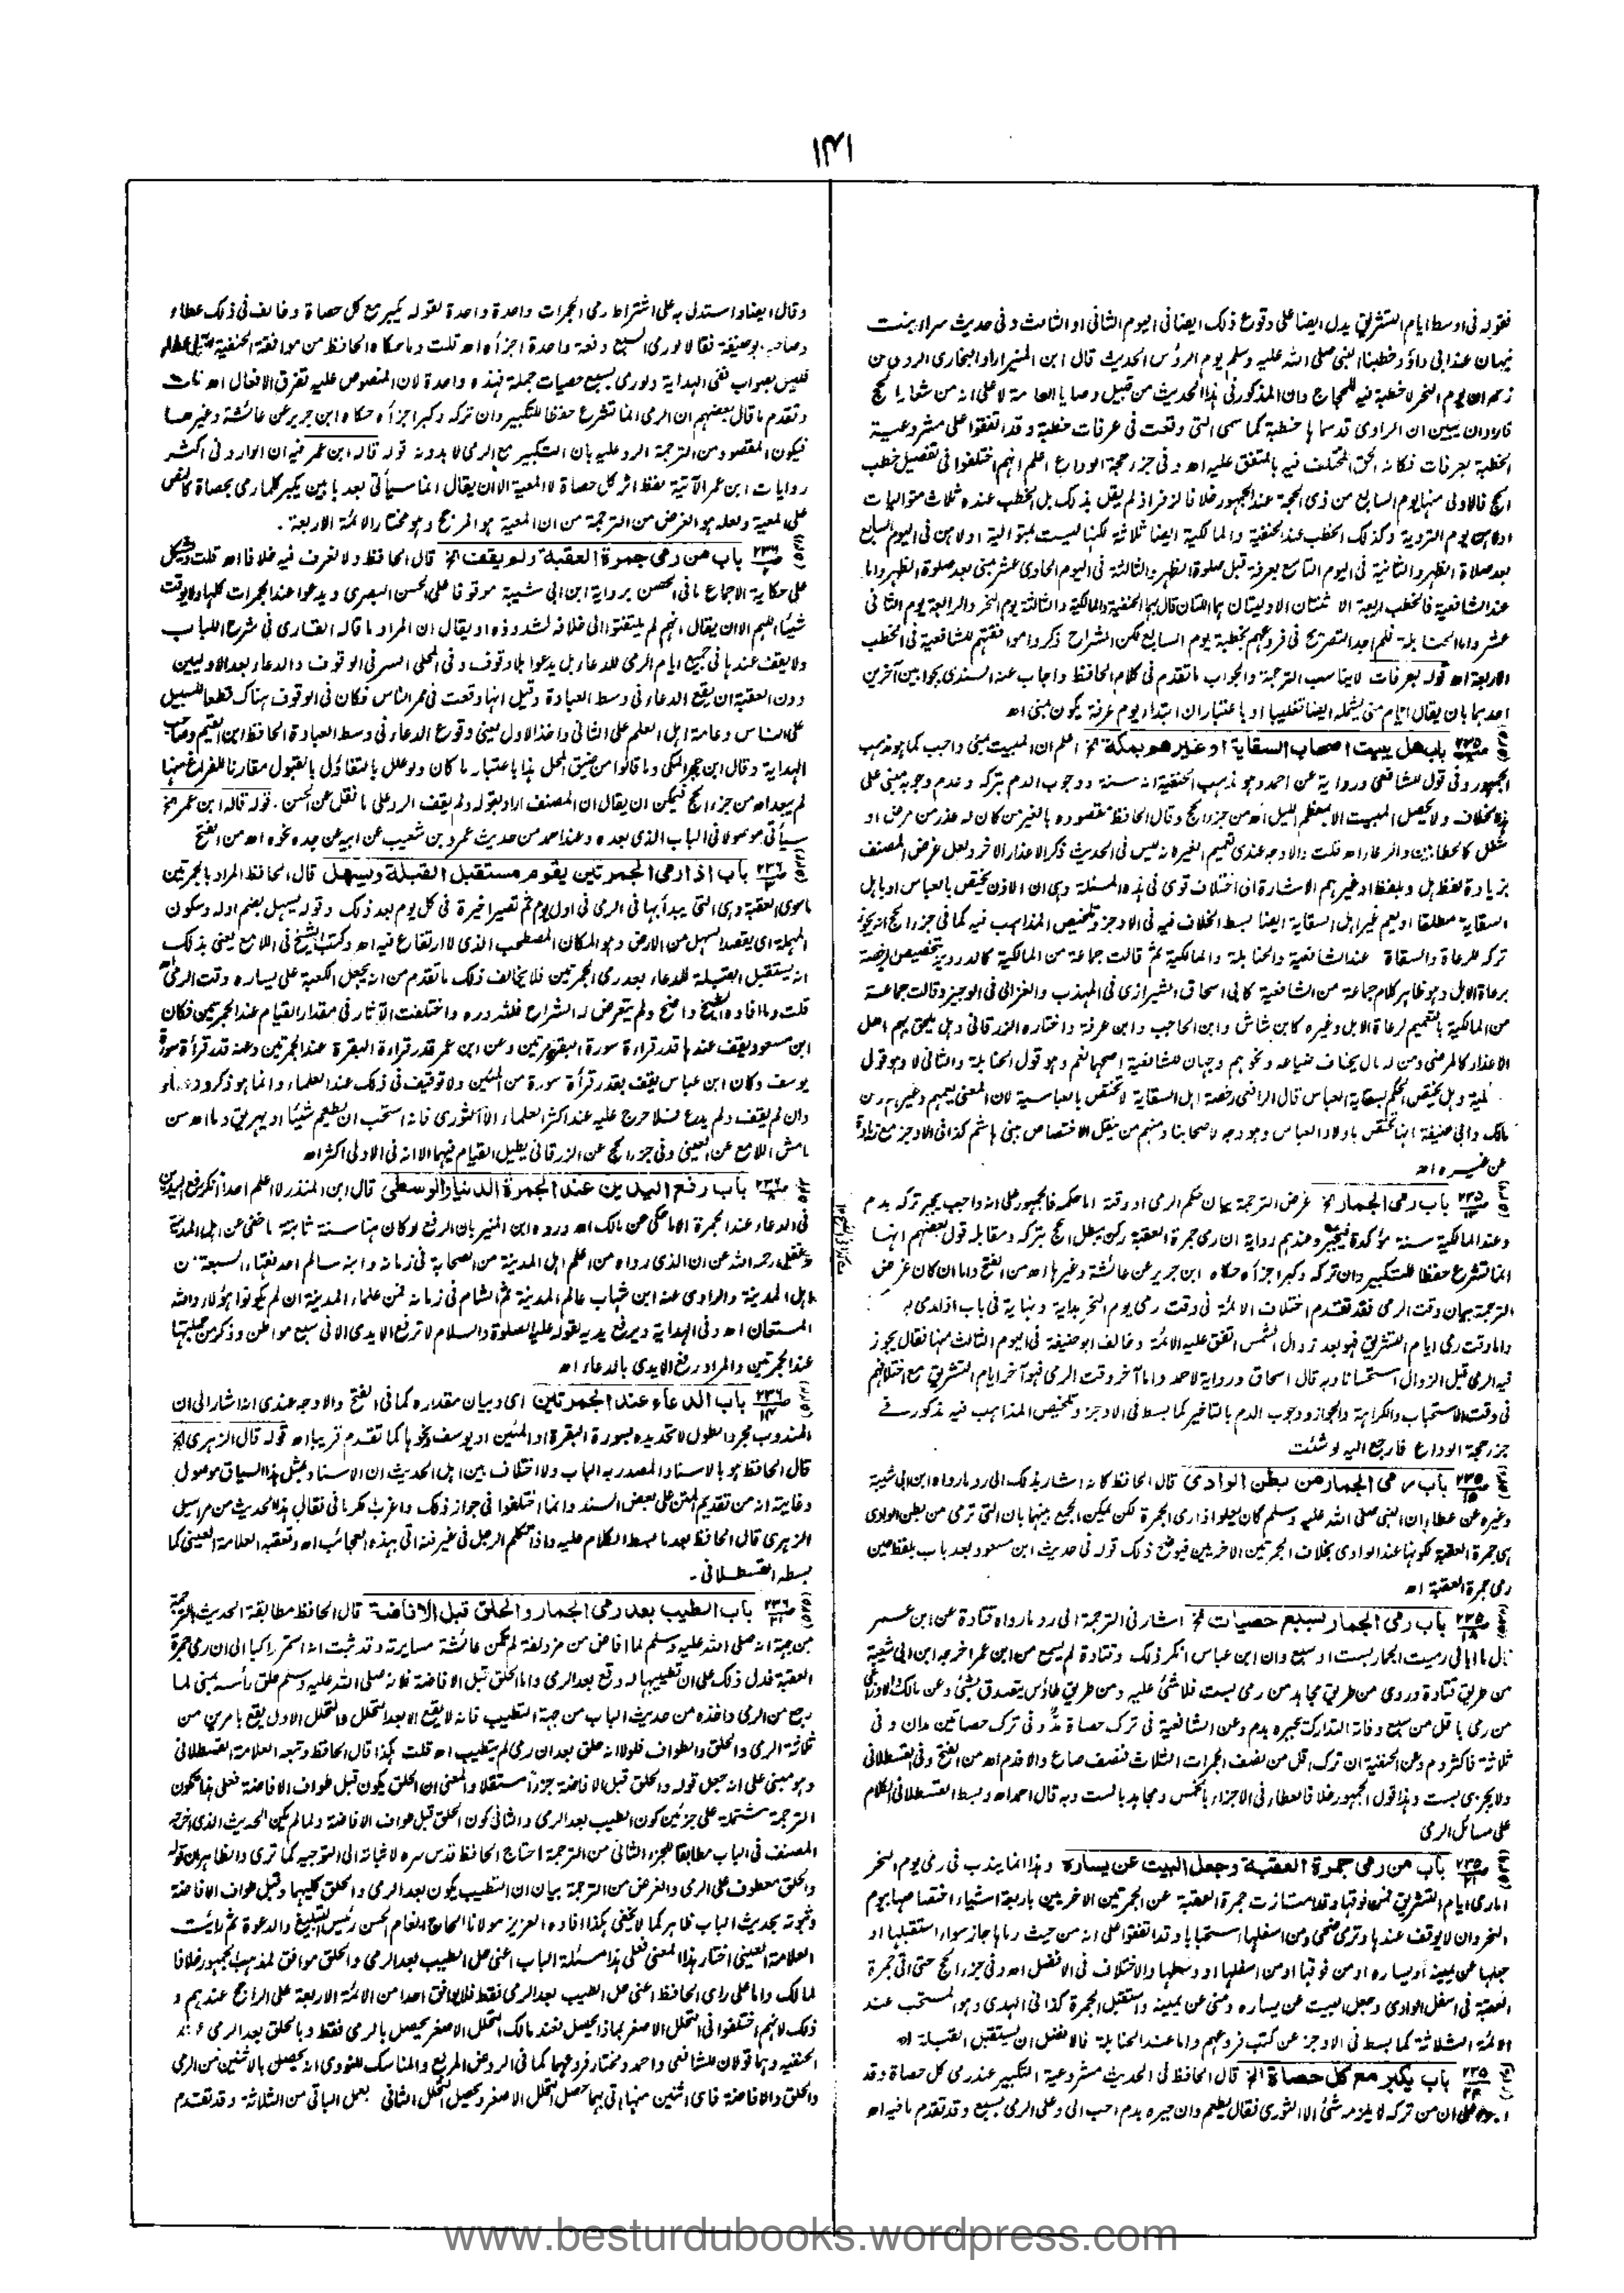 ١٣١
فقوله فى اوسط ايام التشريق يدل ايضا على وقوع ذلك ايضا فى اليوم الثانى او الثالث وفى حديث سراء بنت
نبهان عند ابى داؤد خطبنا النبى صلى الله عليه وسلم يوم الرؤس الحديث قال ابن المنير اراد البخارى الرد على من
زعم ان يوم النحر لا خطبة فيه للحاج وان المذكور فى هذا الحديث من قبيل وصايا العامة لا على انه من شعار الحج
فاراد ان يبين ان الراوى قد سماها خطبة كما سمى التى وقعت فى عرفات خطبة وقد اتفقوا على مشروعية
الخطبة بعرفات فكانه الحق المختلف فيه بالمتفق عليه اھ وفى جزء حجة الوداع اعلم انهم اختلفوا فى تفصيل خطب
الحج فالاولى منها يوم السابع من ذى الحجة عند الجمهور خلافا لزفر اذ لم يقل بذلك بل الخطب عنده ثلاث متواليات
اولاهن يوم التروية وكذلك الخطب عند الحنفية والمالكية ايضا ثلاثة لكنها ليست بمتوالية اولاهن فى اليوم السابع
بعد صلاة الظهر والثانية فى اليوم التاسع بعرفة قبل صلوة الظهر والثالثة فى اليوم الحادى عشر بمنى بعد صلوة الظهر واما
عند الشافعية فالخطب اربعة الاثنتان الاوليتان هما اللتان قال بهما الحنفية والمالكية والثالثة يوم النحر والرابعة يوم الثانى
عشر واما الحنابلة فلم اجد التصريح فى فروعهم بخطبة يوم السابع لكن الشراح ذكروا موافقتهم للشافعية فى الخطب
الاربعة اھ قوله بعرفات لا يناسب الترجمة والجواب ما تقدم فى كلام الحافظ واجاب عنه السندى بجوابين آخرين
احدهما بان يقال ايام منى يشمله ايضا تغليبا او باعتبار ان ابتداء يوم عرفة يكون بمنى اھ
باب هل يبيت اصحاب السقاية او غيرهم بمكة الخ اعلم ان المبيت بمنى واجب كما هو مذهب
الجمهور وفى قول للشافعى ورواية عن احمد وهو مذهب الحنفية انه سنة ووجوب الدم بتركه وعدم وجوبه مبنى على
هذا الخلاف ولا يحصل المبيت الا بمعظم الليل اھ من جزء الحج وقال الحافظ مقصوده بالغير من كان له عذر من مرض او
شغل كالحطابين والرعاء اھ قلت والاوجه عندى تعميم الغير لانه ليس فى الحديث ذكر الاعذار الاخر ولعل غرض المصنف
بزيادة لفظ هل وبلفظ او غيرهم الاشارة الى اختلاف قوى فى هذه المسئلة وهى ان الاذن يختص بالعباس او باهل
السقاية مطلقا او يعم غير اهل السقاية ايضا بسط الخلاف فيه فى الاوجز وتلخيص المذاهب فيه كما فى جزء الحج انه يجوز
تركه للرعاة والسقاة عند الشافعية والحنابلة والمالكية ثم قالت جماعة من المالكية كالدردير بتخصيص الرخصة
برعاة الابل وهو ظاهر كلام جماعة من الشافعية كابى اسحاق الشيرازى فى المهذب والغزالى فى الوجيز وقالت جماعة
من المالكية بالتعميم لرعاة الابل وغيره كابن شاش وابن الحاجب وابن عرفة واختاره الزرقانى وهل يلحق بهم اهل
الاعذار كالمرضى ومن له مال يخاف ضياعه ونحوهم وجهان للشافعية اصحهما نعم وهو قول الحنابلة والثانى لا وهو قول
وهل يختص الحكم بسقاية العباس قال الرافعى رخصة اهل السقاية لا تختص بالعباسية لان المعنى يعمهم وغيرهم وعن
مالك وابى حنيفة انها تختص باولاد العباس وهو وجه لاصحابنا ومنهم من ينقل الاختصاص ببنى هاشم كذا فى الاوجز مع زيادة
عن غيره اھ
باب رمى الجمار الخ غرض الترجمة بيان حكم الرمى او وقته اما حكمه فالجمهور على انه واجب يجبر تركه بدم
وعند المالكية سنة مؤكدة فيجبر وعندهم رواية ان رمى جمرة العقبة ركن يبطل الحج بتركه ومقابله قول بعضهم انها
انما تشرع حفظا للتكبير وان تركه وكبر اجزأه حكاه ابن جرير عن عائشة وغيرها اھ من الفتح واما ان كان غرض
الترجمة بيان وقت الرمى فقد تقدم اختلاف الائمة فى وقت رمى يوم النحر بداية ونهاية فى باب
واما وقت رمى ايام التشريق فهو بعد زوال الشمس اتفق عليه الائمة وخالف ابو حنيفة فى اليوم الثالث منها فقال يجوز
فيه الرمى قبل الزوال استحسانا وبه قال اسحاق ورواية لاحمد واما آخر وقت الرمى فهو آخر ايام التشريق مع اختلافهم
فى وقت الاستحباب والكراهة والجواز ووجوب الدم بالتاخير كما بسط فى الاوجز وتلخيص المذاهب فيه مذكور فى
جزء حجة الوداع فارجع اليه لو شئت
باب رمى الجمار من بطن الوادى قال الحافظ كانه اشار بذلك الى رد ما رواه ابن ابى شيبة
وغيره عن عطاء ان النبى صلى الله عليه وسلم كان يعلو اذا رمى الجمرة لكن يمكن الجمع بينهما بان التى ترمى من بطن الوادى
هى جمرة العقبة لكونها عند الوادى بخلاف الجمرتين الاخريين فيوضح ذلك قوله فى حديث ابن مسعود بعد باب بلفظ حين
رمى جمرة العقبة اھ
باب رمى الجمار بسبع حصيات الخ اشار فى الترجمة الى رد ما رواه قتادة عن ابن عمر
قال ما ابالى رميت الجمار بست او سبع وان ابن عباس انكر ذلك وقتادة لم يسمع من ابن عمر اخرجه ابن ابى شيبة
من طريق قتادة وروى من طريق مجاهد من رمى بست فلا شئ عليه ومن طريق طاؤس يتصدق بشئ وعن مالك والاوزاعى
من رمى باقل من سبع وفاته التدارك يجبره بدم وعن الشافعية فى ترك حصاة مد وفى ترك حصاتين مدان وفى
ثلاثة فاكثر دم وعن الحنفية ان ترك اقل من نصف الجمرات الثلاث فنصف صاع والا فدم اھ من الفتح وفى القسطلانى
ولا يجزى بست وهذا قول الجمهور خلافا لعطاء فى الاجزاء بالخمس ومجاهد بالست وبه قال احمد اھ وبسط القسطلانى الكلام
على مسائل الرمى
باب من رمى جمرة العقبة وجعل البيت عن يساره وهذا انما يندب فى رمى يوم النحر
اما رمى ايام التشريق فمن فوقها وقد امتازت جمرة العقبة عن الجمرتين الاخريين باربعة اشياء اختصاصها بيوم
النحر وان لا يوقف عندها وترمى ضحى ومن اسفلها استحبابا وقد اتفقوا على انه من حيث رماها جاز سواء استقبلها او
جعلها عن يمينه او يساره او من فوقها او من اسفلها او وسطها والاختلاف فى الافضل اھ وفى جزء الحج حتى اتى جمرة
العقبة فى اسفل الوادى وجعل البيت عن يساره ومنى عن يمينه واستقبل الجمرة كذا فى الهدى وهو المستحب عند
الائمة الثلاثة كما بسط فى الاوجز عن كتب فروعهم واما عند الحنابلة فالافضل ان يستقبل القبلة اھ
باب يكبر مع كل حصاة الخ قال الحافظ فى الحديث مشروعية التكبير عند رمى كل حصاة وقد
اجمعوا على ان من تركه لا يلزمه شئ الا الثورى فقال يطعم وان جبره بدم احب الى وعلى الرمى بسبع وقد تقدم ما فيه اھ
وقال ايضا واستدل به على اشتراط رمى الجمرات واحدة واحدة لقوله يكبر مع كل حصاة وخالف فى ذلك عطاء
وصاحبه ابو حنيفة فقالا لو رمى السبع دفعة واحدة اجزأه اھ قلت وما حكاه الحافظ من موافقة الحنفية
فليس بصواب ففى الهداية ولو رمى بسبع حصيات جملة فهذه واحدة لان المنصوص عليه تفرق الافعال اھ
وتقدم ما قال بعضهم ان الرمى انما تشرع حفظا للتكبير وان تركه وكبر اجزأه حكاه ابن جرير عن عائشة وغيرها
فيكون المقصود من الترجمة الرد عليه بان التكبير مع الرمى لا بدونه قوله قاله ابن عمر فيه ان الوارد فى اكثر
روايات ابن عمر الآتية بلفظ اثر كل حصاة لا المعية الا ان يقال انما سيأتى بعد بابين يكبر كلما رمى بحصاة كالنص
على المعية ولعله هو الغرض من الترجمة من ان المعية هو المرجح وهو مختار الائمة الاربعة.
باب من رمى جمرة العقبة ولم يقف الخ قال الحافظ ولا نعرف فيه خلافا اھ قلت ويشكل
على حكاية الاجماع ما فى الحصن برواية ابن ابى شيبة موقوفا على الحسن البصرى ويدعوا عند الجمرات كلها ولا يوقت
شيئا اللهم الا ان يقال انهم لم يلتفتوا الى خلافه لشذوذه او يقال ان المراد ما قاله القارى فى شرح اللباب
ولا يقف عندها فى جميع ايام الرمى للدعاء بل يدعوا بلا وقوف وفى المحلى السر فى الوقوف والدعاء بعد الاوليين
دون العقبة ان يقع الدعاء فى وسط العبادة وقيل انها وقعت فى ممر الناس فكان فى الوقوف هناك قطعا للسبيل
على الناس وعامة اهل العلم على الثانى واخذ الاول يعنى وقوع الدعاء فى وسط العبادة الحافظ ابن القيم وصاحب
الهداية وقال ابن حجر المكى وما قالوا من ضيق المحل هذا باعتبار ما كان ولو علل بالتفاؤل بالقبول مقارنا للفراغ منها
لم يبعد اھ من جزء الحج فيمكن ان يقال ان المصنف اراد بقوله ولم يقف الرد على ما نقل عن الحسن. قوله قاله ابن عمر الخ
سيأتى موصولا فى الباب الذى بعده وعند احمد من حديث عمرو بن شعيب عن ابيه عن جده نحوه اھ من الفتح
باب اذا رمى الجمرتين يقوم مستقبل القبلة ويسهل قال الحافظ المراد بالجمرتين
ما سوى العقبة وهى التى يبدأ بها فى الرمى فى اول يوم ثم تصير اخيرة فى كل يوم بعد ذلك وقوله يسهل بضم اوله وسكون
المهملة اى يقصد السهل من الارض وهو المكان المصطحب الذى لا ارتفاع فيه اھ وكتب الشيخ فى اللامع يعنى بذلك
انه يستقبل القبلة للدعاء بعد رمى الجمرتين فلا يخالف ذلك ما تقدم من انه يجعل الكعبة على يساره وقت الرمى اھ
قلت وما افاده الشيخ واضح ولم يتعرض له الشراح فلله دره واختلفت الآثار فى مقدار القيام عند الجمرتين فكان
ابن مسعود يقف عندها قدر قراءة سورة البقرة مرتين وعن ابن عمر قدر قراءة البقرة عند الجمرتين وعنه قدر قرأة سورة
يوسف وكان ابن عباس يقف بقدر قرأة سورة من المئين ولا توقيف فى ذلك عند العلماء وانما هو ذكر ودعاء
وان لم يقف ولم يدع فلا حرج عليه عند اكثر العلماء الا الثورى فانه استحب ان يطعم شيئا او يهريق دما اھ من
هامش اللامع عن العينى وفى جزء الحج عن الزرقانى يطيل القيام فيهما الا انه فى الاولى اكثر اھ
باب رفع اليدين عند الجمرة الدنيا والوسطى قال ابن المنذر لا اعلم احدا انكر رفع اليدين
فى الدعاء عند الجمرة الا ما حكى عن مالك اھ ورده ابن المنير بان الرفع لو كان هنا سنة ثابتة ما خفى عن اهل المدينة
وغفل رحمه الله عن ان الذى رواه من اعلم اهل المدينة من الصحابة فى زمانه وابنه سالم احد فقهاء السبعة من
اهل المدينة والراوى عنه ابن شهاب عالم المدينة ثم الشام فى زمانه فمن علماء المدينة ان لم يكونوا هؤلاء والله
المستعان اھ وفى الهداية ويرفع يديه لقوله عليه الصلوة والسلام لا ترفع الايدى الا فى سبع مواطن وذكر من جملتها
عند الجمرتين والمراد رفع الايدى بالدعاء اھ
باب الدعاء عند الجمرتين اى وبيان مقداره كما فى الفتح والاوجه عندى انه اشار الى ان
المندوب مجرد الطول لا تحديده بسورة البقرة او المئين او يوسف ونحوها كما تقدم قريبا اھ قوله قال الزهرى الخ
قال الحافظ هو بالاسناد المصدر به الباب ولا اختلاف بين اهل الحديث ان الاسناد بمثل هذا السياق موصول
وغايته انه من تقديم المتن على بعض السند وانما اختلفوا فى جواز ذلك واغرب الكرمانى فقال هذا الحديث من مراسيل
الزهرى قال الحافظ بعد ما بسط الكلام عليه واذا تكلم الرجل فى غير فنه اتى بهذه العجائب اھ وتعقبه العلامة العينى كما
بسطه القسطلانى.
باب الطيب بعد رمى الجمار والحلق قبل الافاضة قال الحافظ مطابقة الحديث للترجمة
من جهة انه صلى الله عليه وسلم لما افاض من مزدلفة لم تكن عائشة مسايرته وقد ثبت انه استمر راكبا الى ان رمى جمرة
العقبة فدل ذلك على ان تطييبها له وقع بعد الرمى واما الحلق قبل الافاضة فلانه صلى الله عليه وسلم حلق رأسه بمنى لما
رجع من الرمى واخذه من حديث الباب من جهة التطييب فانه لا يقع الا بعد التحلل والتحلل الاول يقع بامرين من
ثلاثة الرمى والحلق والطواف فلولا انه حلق بعد ان رمى لم يتطيب اھ قلت هكذا قال الحافظ وتبعه العلامة القسطلانى
وهو مبنى على انه جعل قوله والحلق قبل الافاضة جزءا مستقلا والمعنى ان الحلق يكون قبل طواف الافاضة فعلى هذا تكون
الترجمة مشتملة على جزئين كون الطيب بعد الرمى والثانى كون الحلق قبل طواف الافاضة ولما لم يكن الحديث الذى اخرجه
المصنف فى الباب مطابقا للجزء الثانى من الترجمة احتاج الحافظ قدس سره لاثباته الى التوجيه كما ترى والظاهر ان قوله
والحلق معطوف على الرمى والغرض من الترجمة بيان ان التطيب يكون بعد الرمى والحلق كليهما وقبل طواف الافاضة
وثبوته بحديث الباب ظاهر كما لا يخفى هكذا افاده العزيز مولانا الحاج انعام الحسن رئيس التبليغ والدعوة ثم رأيت
العلامة العينى اختار هذا المعنى فعلى هذا مسئلة الباب اعنى حل الطيب بعد الرمى والحلق موافق لمذهب الجمهور خلافا
لمالك واما على راى الحافظ اعنى حل الطيب بعد الرمى فقط فلا يوافق احدا من الائمة الاربعة على الراجح عندهم و
ذلك لانهم اختلفوا فى التحلل الاصغر بماذا يحصل فعند مالك التحلل الاصغر يحصل بالرمى فقط وبالحلق بعد الرمى عند
الحنفية وهما قولان للشافعى واحمد ومختار فروعهما كما فى الروض المربع والمناسك للنووى انه يحصل بالاثنين من الرمى
والحلق والافاضة فاى اثنين منها اتى بهما حصل التحلل الاصغر ويحصل التحلل الثانى بعمل الباقى من الثلاثة وقد تقدم
www.besturdubooks.wordpress.com